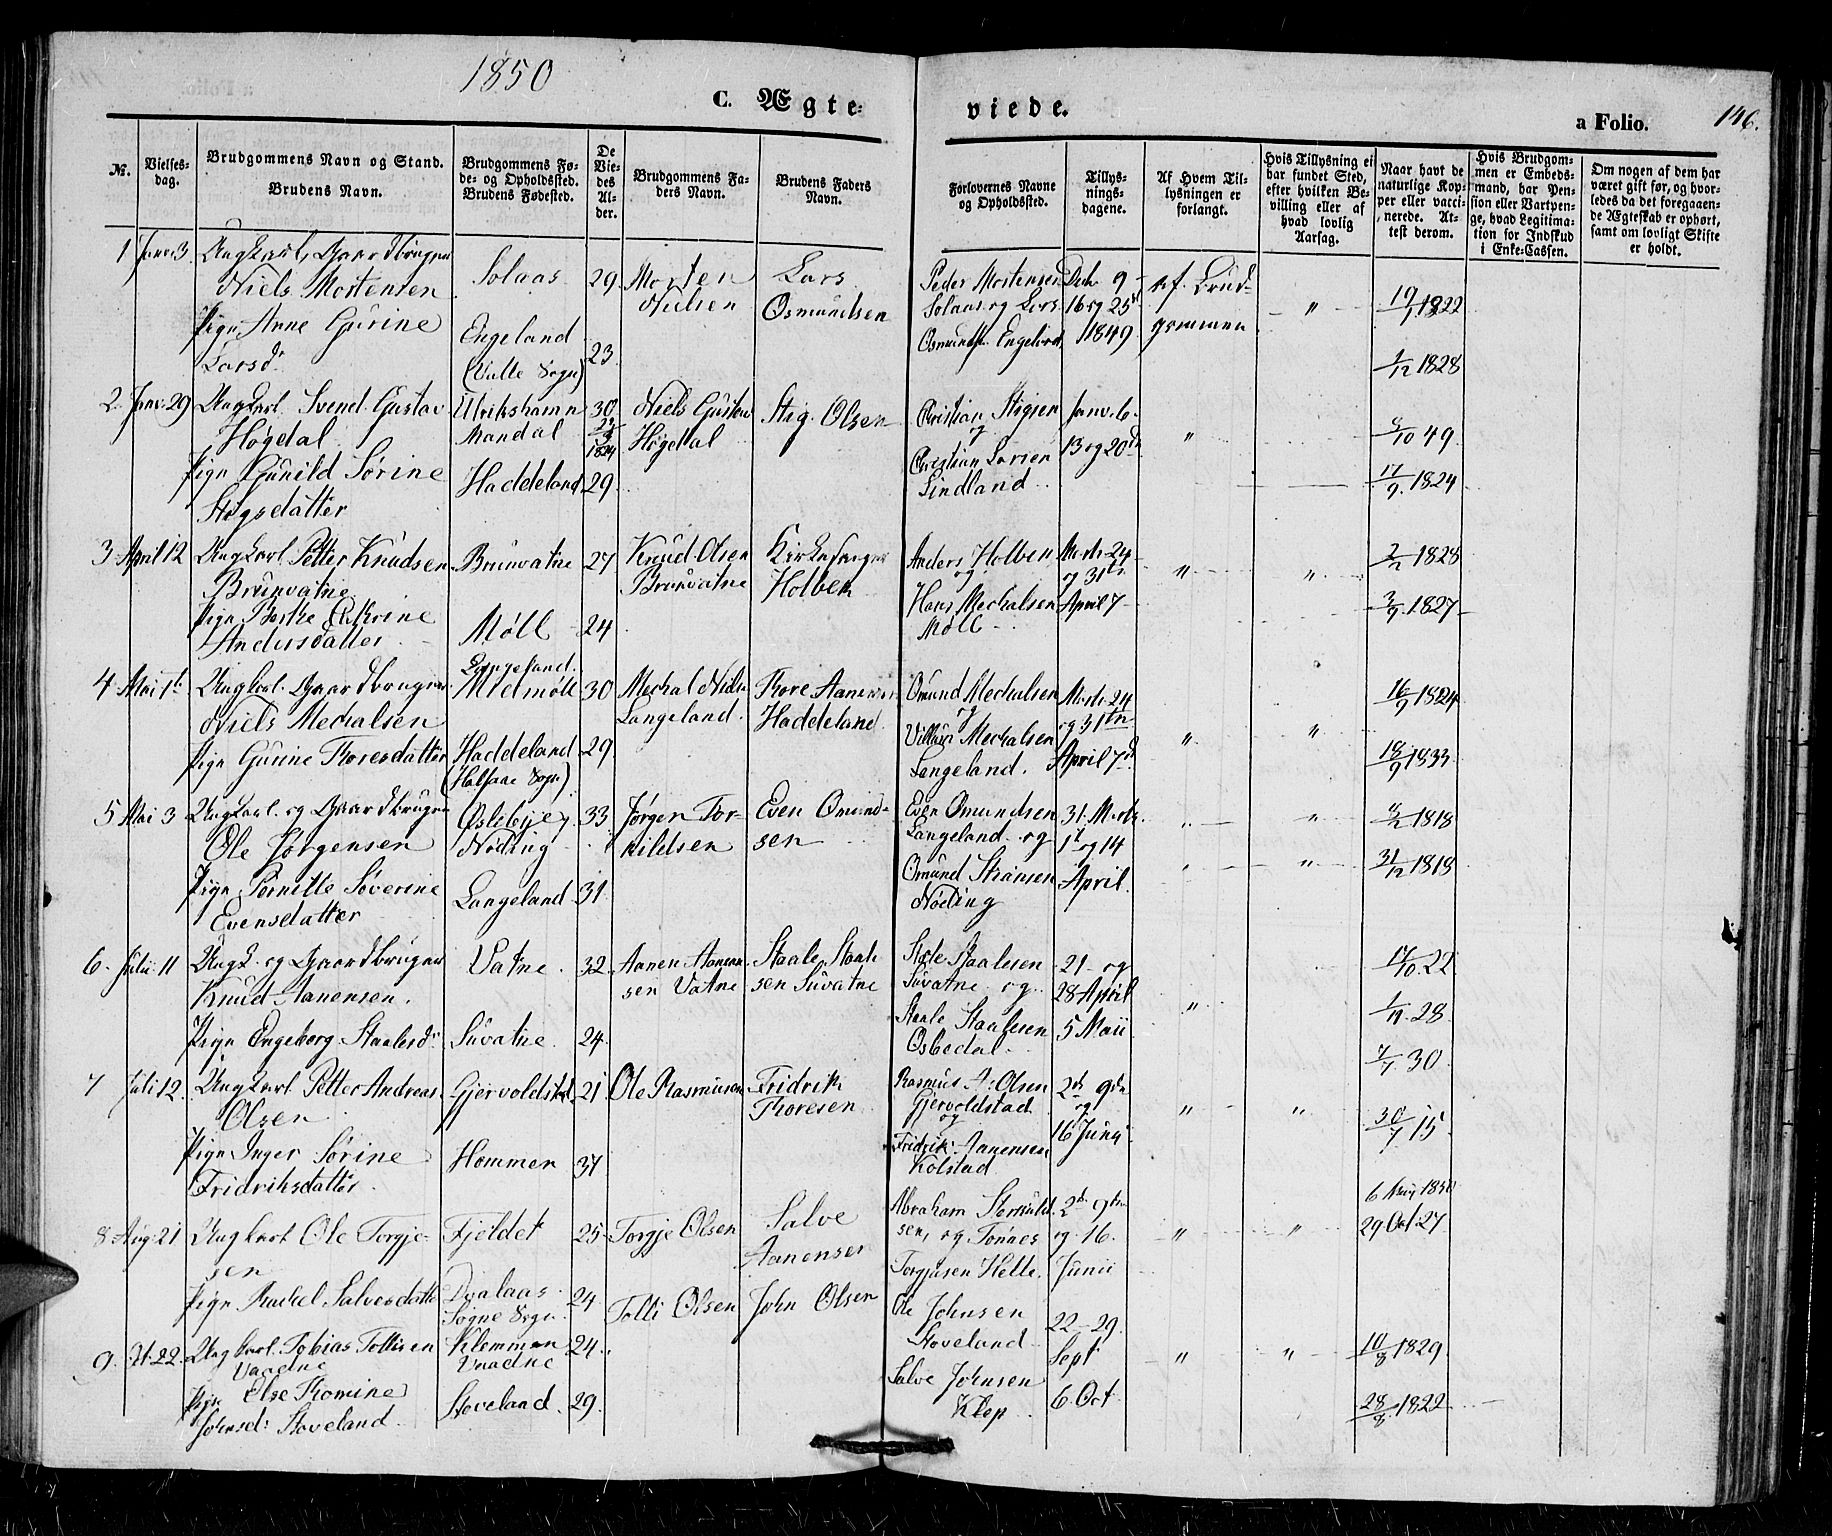 1850
C. Ægte-
viede.
a Folio.
146.
№.
Vielses-
dag.
Brudgommens Navn og Stand.
Brudens Navn.
Brudgommens Fø-
de- og Opholdssted.
Brudens Fødested.
De
Vie-
des
Al-
der.
Brudgommens Fa-
ders Navn.
Brudens Faders
Navn.
Forlovernes Navne
og Opholdssted.
Tillys-
nings-
dagene.
Af Hvem Til-
lysningen er
forlangt.
Hvis Tillysning ei
har fundet Sted,
efter hvilken Be-
villing eller af
hvad lovlig
Aarsag.
Naar havt de
naturlige Kop-
per eller vacci-
nerede. At-
test derom.
Hvis Brudgom-
men er Embeds-
mand, har Pen-
sion eller Vartpen-
ge, hvad Legitima-
tion for Indskud
i Enke-Cassen.
Om nogen af dem har
været gift før, og hvor-
ledes da det foregaaen-
de Ægteskab er ophørt,
samt om lovligt Skifte
er holdt.
1 Janv. 3. Ungkarl, Gaardbruger
Niels Mortensen
Pige Anne Gurine
Larsdr
Solaas
Engeland
(Valle Sogn)
29
23.
Morten
Nielsen
Lars
Osmundsen
Peder Mortensen
Solaas og Lars
Osmunds. Engeland
Decbr 9
16 og 25d
1849
af Brud-
gommen
"
19/1 1822
1/12 1828
2. Janv. 29 Ungkarl Svend Gustav
Høgedal
Pige Gunild Sørine
Stigsdatter
Ulrikshamn
Mandal
Haddeland
30
1824
29
Niels Gustav
Høgedal
Stig Olsen
Christian Stigsen
og
Christian Larsen
Lindland
Janv. 6
13 og 20de
"
8/10 49
17/9 1824
3 April 12 Ungkarl Petter Knudsen
Brunvatne
Pige Berthe Cathrine
Andersdatter
Brunvatne
Møll
27
24
Knud Olsen
Brunvatne
Kirkesanger
Holbek
Anders Holbek
og
Hans Mechalsen
Møll
Marts 24
og 31te
April 7
"
"
2/7 1828
3/9 1827
4 Mai 1te Ungkarl Gaardbruger
Niels Mechalsen
Pige Gurine Thoresdatter
Langeland
Midmøll
Haddeland
(Halsaae Sogn)
30
29
Mechal Niels
Langeland
Thore Aanensen
Haddeland
Omund Mechalsen
og
Villum Mechalsen
Langeland.
Marts 24
og 31te
April 7de
"
"
16/9 1824
18/9 1833
5 Mai 3 Ungkarl og Gaardbruger
Ole Jørgensen
Pige Pernille Severine
Evensdatter
Øslebye
Nøding
Langeland
33
31
Jørgen Tor-
kildsen
Even Omund-
sen
Even Omundsen
Langeland og
Omund
Nøding
31 Marts
1t og 14
April
"
"
1818
31/12 1818
6. Julii 11 Ungk. og Gaardbruger
Knud Aanensen.
Pige Engeborg Staalesdr
Vatne
Suvatne
32
24
Aanen Aanen-
sen Vatne
Staale Staale
sen Suvatne
Staale Staalesen
Suvatne og
Staale Staalesen
Osbedal
21 og
28 April
5 Maii
"
17/10 22
1/11 28
7/7 30
7 Juli 12. Ungkarl Petter Andreas
Olsen
Pige Inger Sørine
Fridriksdatter
Gjervoldstad
Hommen
21
37
Ole Rasmusen
Fridrik
Thoresen
Rasmus A. Olsen
Gjervoldstad
og
Fridrik Aanensen
Kolstad
2den 9de
og
16 Juni
"
"
30/7 15
8 Aug. 21 Ungkarl Ole Torgje-
sen
Pige Rachel Salvesdatter
Fjeldet
Sogne Sogn
25
24
Torgje Olsen
Salve
Aanensen
Abraham
sen, og Tønnes
Torgjusen Helle.
2den 9de
og 16.
Junii
"
"
6 Aug 1830
29 Oct 27
9. Ungkarl Tobias Tollisen
Vaadne
Pige Else Thomine
Johnsdr Stoveland.
Klemmen
Vaadne
Stoveland.
24.
29.
Tolli Olsen
John Olsen
Ole Johnsen
Stoveland
Salve Johnsen
Klep
22-29
Sept
6 Oct
"
"
10/8 1829
28/8 1822